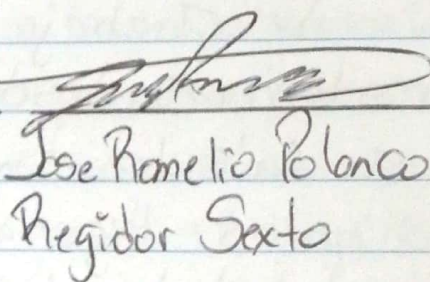 Jose Romelio Polanco
Regidor Sexto